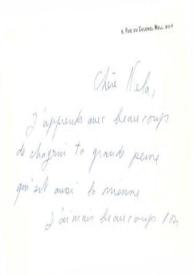 6, RUE DU COLONEL MOLL
Chère Nela,
J'apprends avec beaucoup
de chagrin ta grande peine
qui est aussi la mienne
J'aimais beaucoup